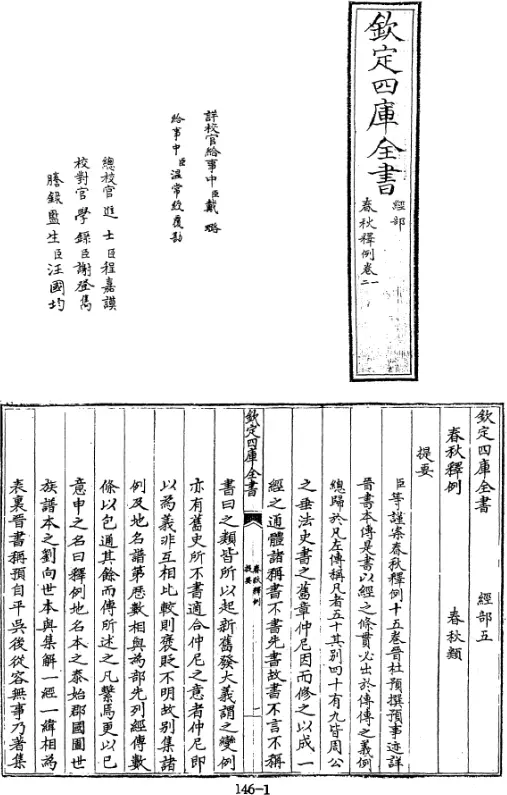 欽定四庫全書
經部
春秋釋例卷一
二
詳校官給事中臣戴璐
給事中臣溫常綬覆勘
總校官進士臣程嘉謨
校對官學錄臣謝登雋
謄錄監生臣汪國均
欽定四庫全書 經部五
春秋釋例 春秋類
提要
臣等謹案春秋釋例十五卷晉杜預撰預事迹詳
晉書本傳是書以經之條貫必出於傳傳之義例
總歸於凡左傳稱凡者五十其別四十有九皆周公
之垂法史書之舊章仲尼因而修之以成一
經之通體諸稱書不書先書故書不言不稱
欽定四庫全書
春秋釋例
提要
一
書曰之類皆所以起新舊發大義謂之變例
亦有舊史所不書適合仲尼之意者仲尼即
以為義非互相比較則褒貶不明故別集諸
例及地名譜第歷數相與為部先列經傳數
條以包通其餘而傳所述之凡繫焉更以己
意申之名曰釋例地名本之泰始郡國圖世
族譜本之劉向世本與集解一經一緯相為
表裏晉書稱預自平吳後從容無事乃著集
146-1